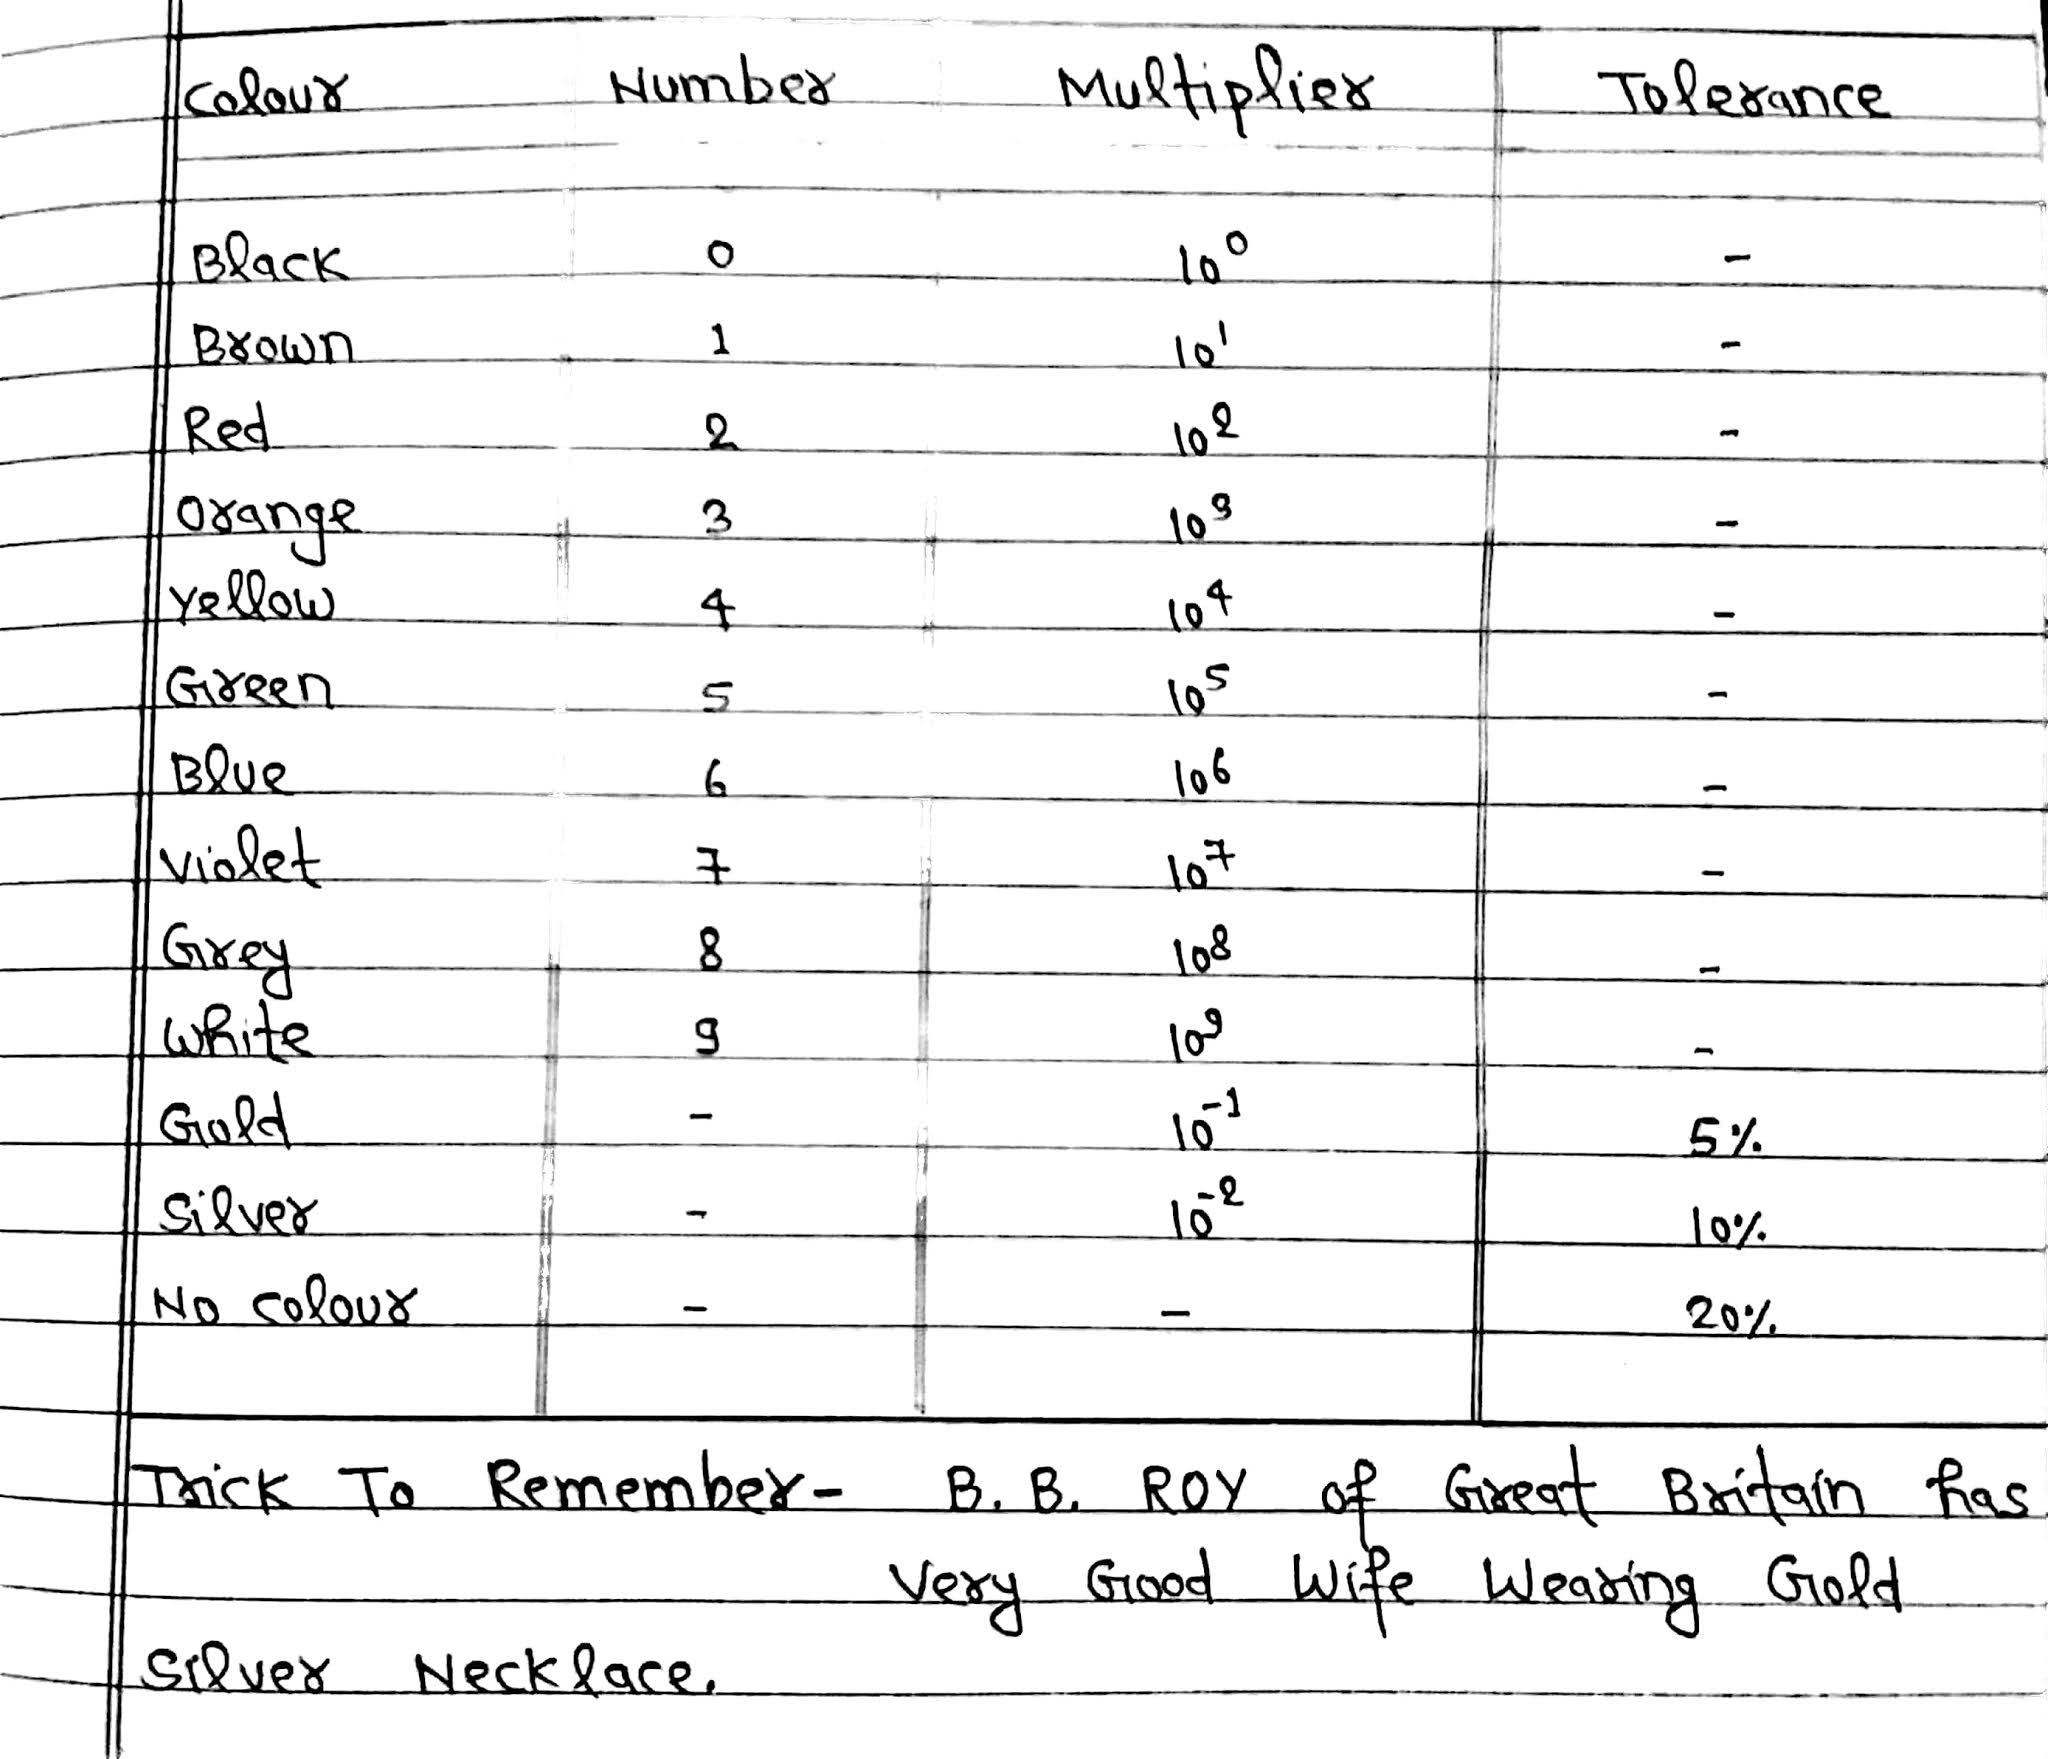 Colour Number Multiplier Tolerance
Black 0 10⁰ -
Brown 1 10¹ -
Red 2 10² -
Orange 3 10³ -
Yellow 4 10⁴ -
Green 5 10⁵ -
Blue 6 10⁶ -
Violet 7 10⁷ -
Grey 8 10⁸ -
White 9 10⁹ -
Gold - 10⁻¹ 5%
Silver - 10⁻² 10%
No colour - - 20%
Trick To Remember- B. B. ROY of Great Britain has
Very Good Wife Wearing Gold
Silver Necklace.